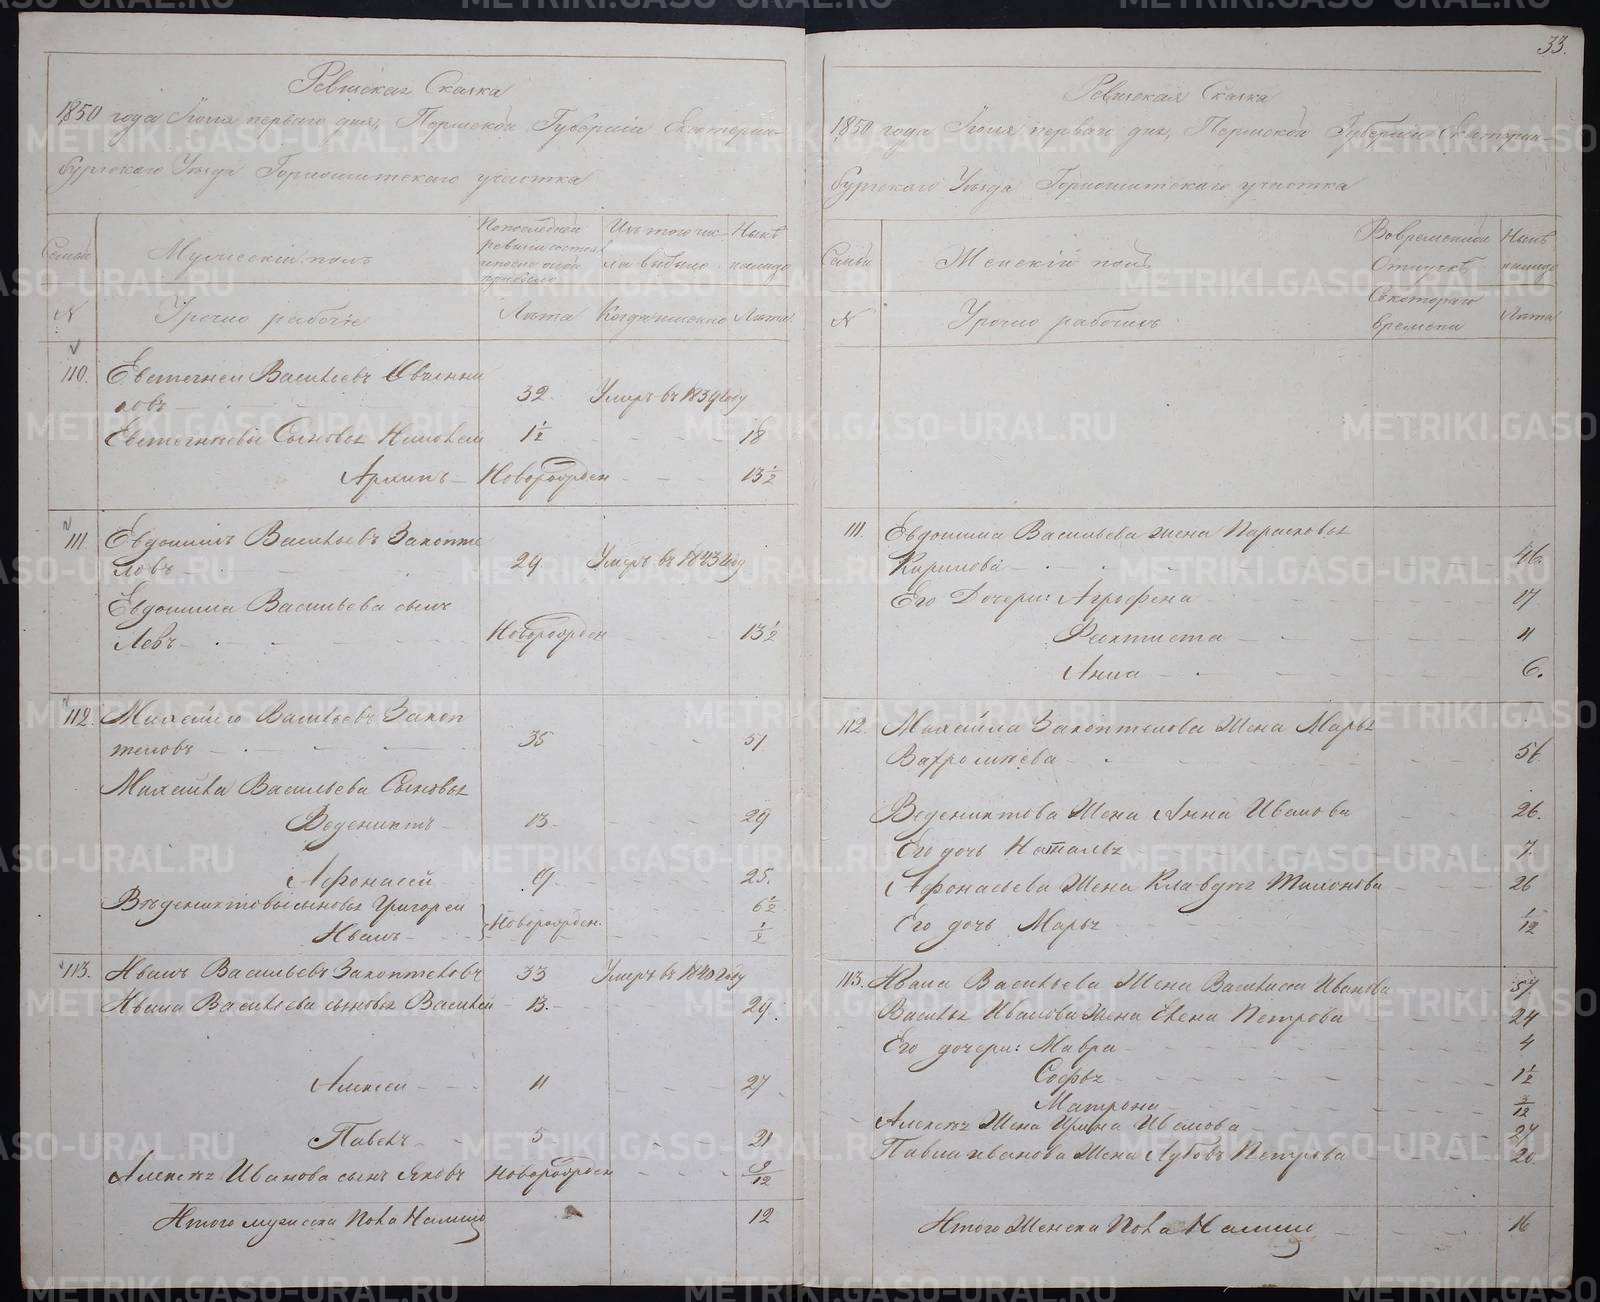 33.
Ревизская Сказка
1850 года Июня первого дня, Пермской Губерніи Екатерин-
бургского Уѣзда Горнощитскаго участка
Семьи
Мужескій полъ
По последней
ревизіи состоял
и после оной
прибыло
Изъ того чис-
ла выбыло
Нынѣ
налицо
N
Урочно рабочіе
Лѣта
Когда именно
Лѣта
110.
Евстегней Васильевъ
ловъ
32.
Умеръ въ 1839 году
Евстегнѣевы Сыновья
1 1/2
18
Архипъ
Новорожден
13 1/2
111.
Евдокимъ Васильевъ Закопте
ловъ
29.
Умеръ въ 1843 году
Евдокима Васильева сынъ
Левъ
Новорожден
13 1/2
112.
Михайло Васильевъ Закоп
теловъ
35
51
Михайла Васильева Сыновья
Веденихтъ
13
29
Афонасей
9
25.
Веденихтовы сыновья Григорей
6 1/2
Иванъ
Новорожден.
113.
Иванъ Васильевъ Закоптеловъ
33
Умеръ въ 1840 году
Ивана Васильева сыновья Василей
13
29.
Алексей
11
27
Павелъ
5
21
Алексея Иванова сынъ Яковъ
Новорожден
9/12
Итого мужеска пола налицо
12
Ревизская Сказка
1850 года Июня первого дня, Пермской Губерніи Екатерин-
бургского Уѣзда Горнощитскаго участка
Семьи
Женскій полъ
Во временной
Отлучкѣ
Нынѣ
налицо
N
Урочно рабочихъ
Съ котораго
времени
Лѣта
111.
Евдокима Васильева жена Парасковья
Кирилова
46.
Его Дочери: Агрофена
17
Феоктиста
11
Анна
6.
112.
Михайла Закоптелова Жена Марья
Вахромеева
51
Веденихтова Жена Анна Иванова
26.
Его дочь Наталья
7.
Афонасьева Жена Клавдия
26
Его дочь Марья
1/12
113.
Ивана Васильева Жена Василиса Иванова
57
Василья Иванова Жена Елена Петрова
24
Его дочери: Мавра
4
Софья
1 1/2
Матрона
Алексея Жена Ирина Иванова
27
Павла Иванова Жена Любовь Петрова
20
Итого Женска пола налицо
16
METRIKI.GASO-URAL.RU